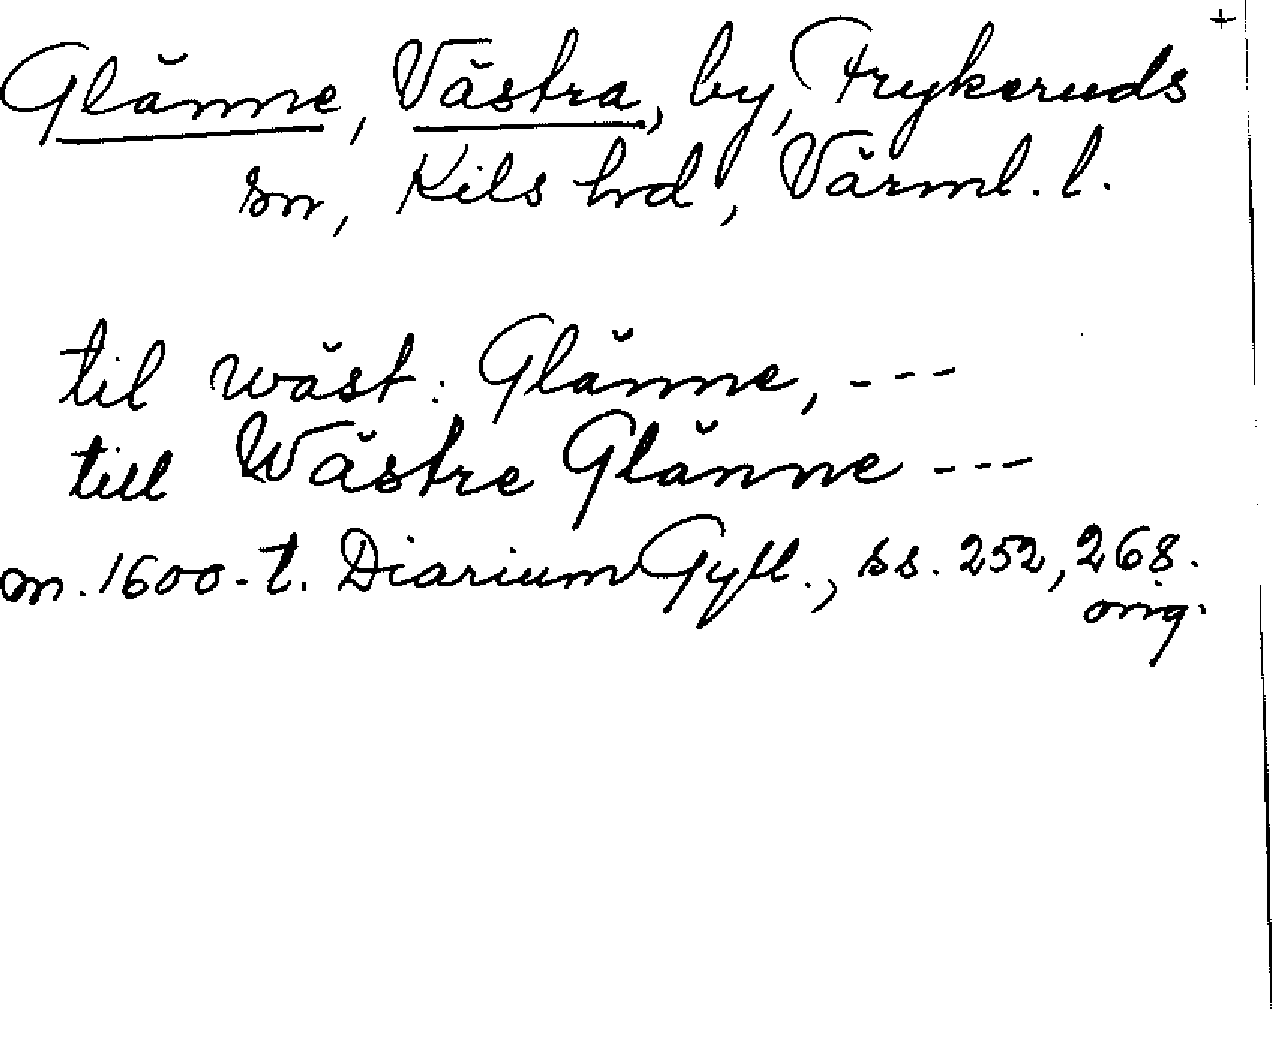 +
Glänne, Västra, by, Frykeruds
sn, Kils hd, Värml. l.
til wäst: Glänne, ---
till Wästre Glänne ---
m. 1600-t. Diarium Gyll., ss. 252, 268.
orig.